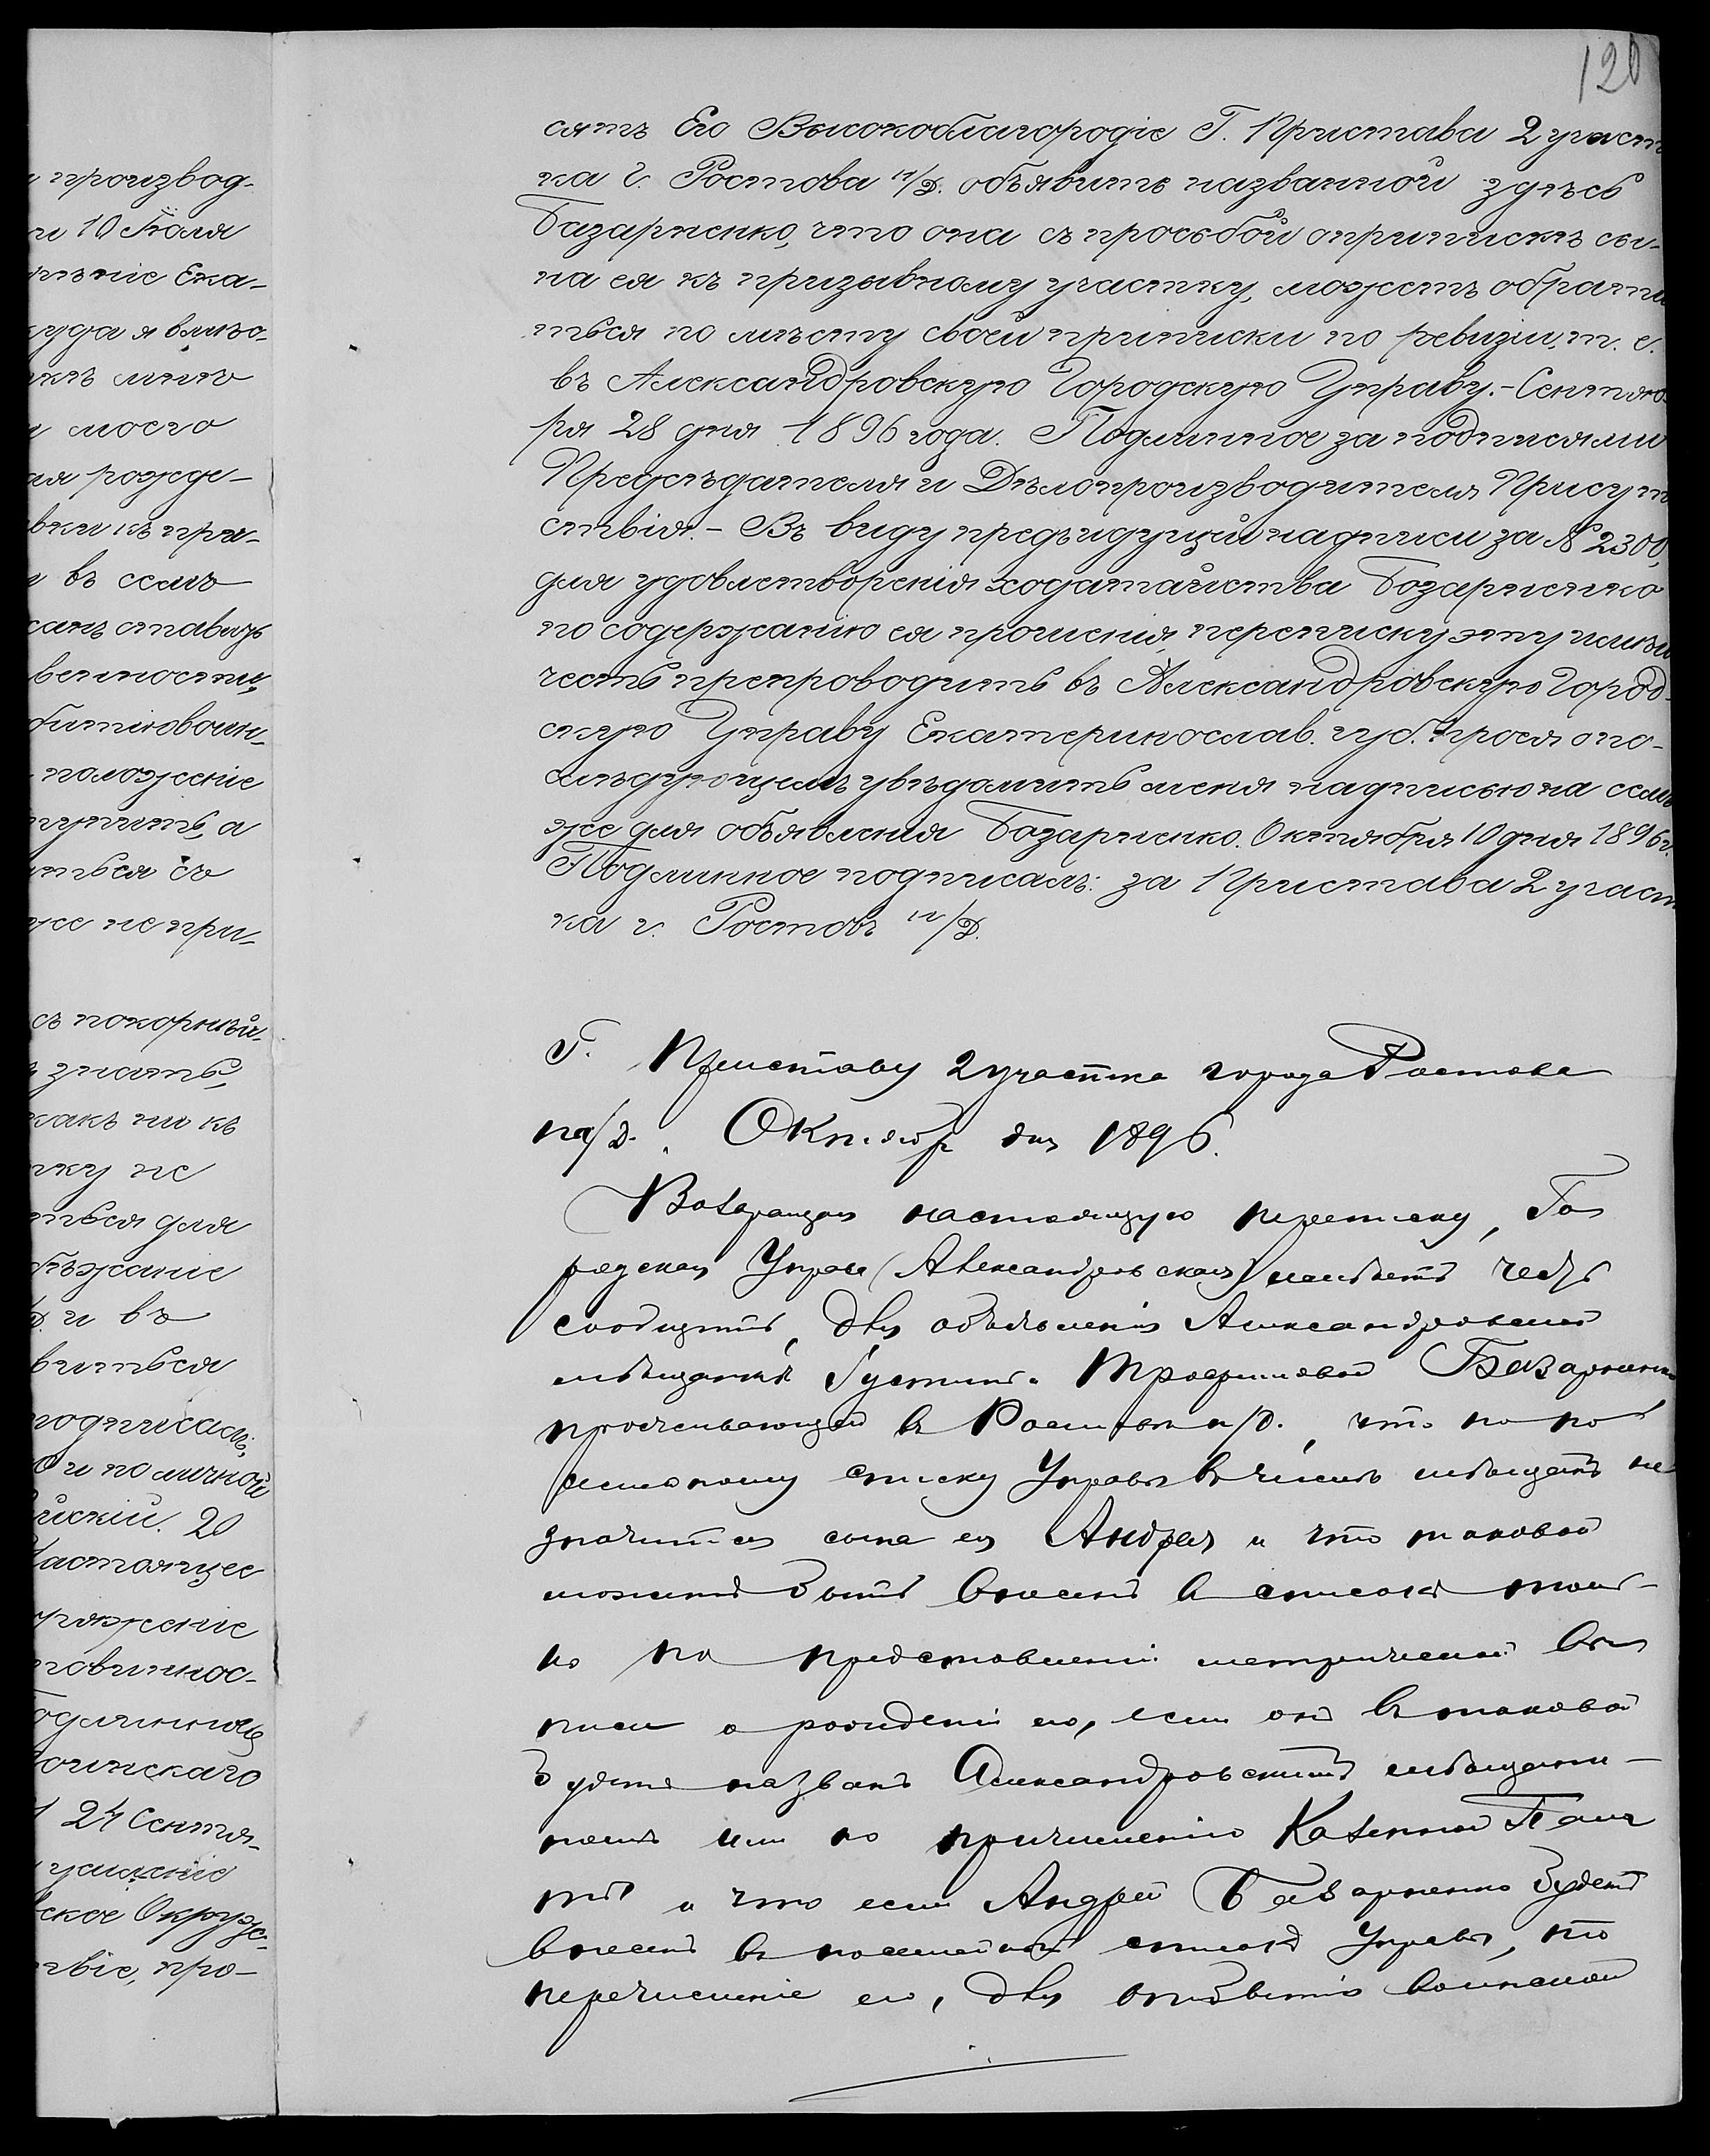 120
сятъ Его Высокоблагородіе Г. Пристава 2 участ
ка г. Ростова н/Д. объявить названной здѣсь
Базарненко, что она съ просьбой о припискѣ сы-
на ея къ призывному участку, можетъ обрати
ться по мѣсту своей приписки по ревизіи, т. е.
въ Александровскую Городскую Управу. - Сентяб
ря 28 дня 1896 года. Подлинное за подписями
Предсѣдателя и Дѣлопроизводителя Присут
ствія. - Въ виду предъидущей надписи за № 2300,
для удовлетворенія ходатайства Бозарненко
по содержанію ея прошенія, переписку эту имѣю
честь препроводить въ Александровскую Город-
скую Управу Екатеринослав. губ. прося о по-
слѣдующемъ увѣдомить меня надписью на семъ
же для объявленія Бозарненко. Октября 10 дня 1896 г.
Подлинное подписалъ: за Пристава 2 участ
ка г. Ростовъ н/Д.
Г. Приставу 2 участка города Ростова
на/Д. Октябр дня 1896.
Возвращая настоящую переписку, Го
родская Управа (Александровская) имѣетъ честь
сообщить, для объявленія Александровской
мѣщанкѣ Устиньи Трофимовой Базарненко
проживающей въ Ростовѣ н/Д., что по по
семейному списку Управы въ числѣ мѣщанъ не
значится сына ея Андрея и что таковой
можетъ быть внесенъ въ списокъ толь-
ко по представленіи метрической вы
писи о рожденіи его, если онъ въ таковой
будетъ названъ Александровскимъ мѣщани-
номъ или по причисленію Казенной Пала
ты и что если Андрей Базарненко будетъ
внесенъ въ посемейный списокъ Управы, то
перечисленіе его, для отбытія воинской
и производ-
10 Іюля
Ека-
моего
рожде-
къ при-
въ семъ
положеніе
а
ться съ
же не при-
съ покорнѣй-
знать,
ни къ
не
ться для
и въ
виться
подписалъ,
и по личной
20
Настоящее
24 Сентя-
ское Окруж-
про-